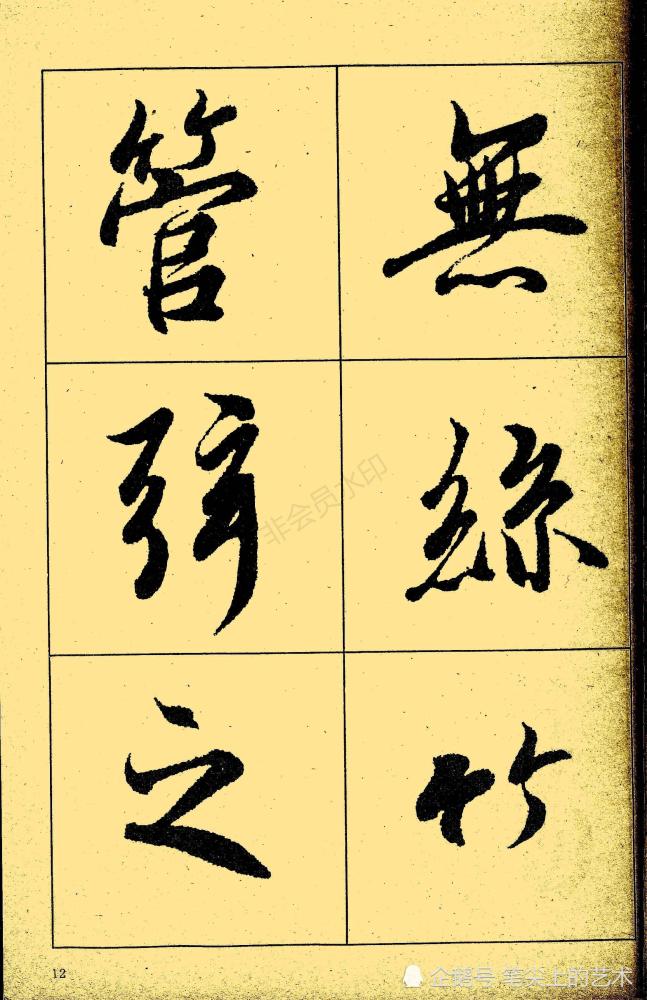 無絲竹
管弦之
非会员水印
12
企鹅号 笔尖上的艺术